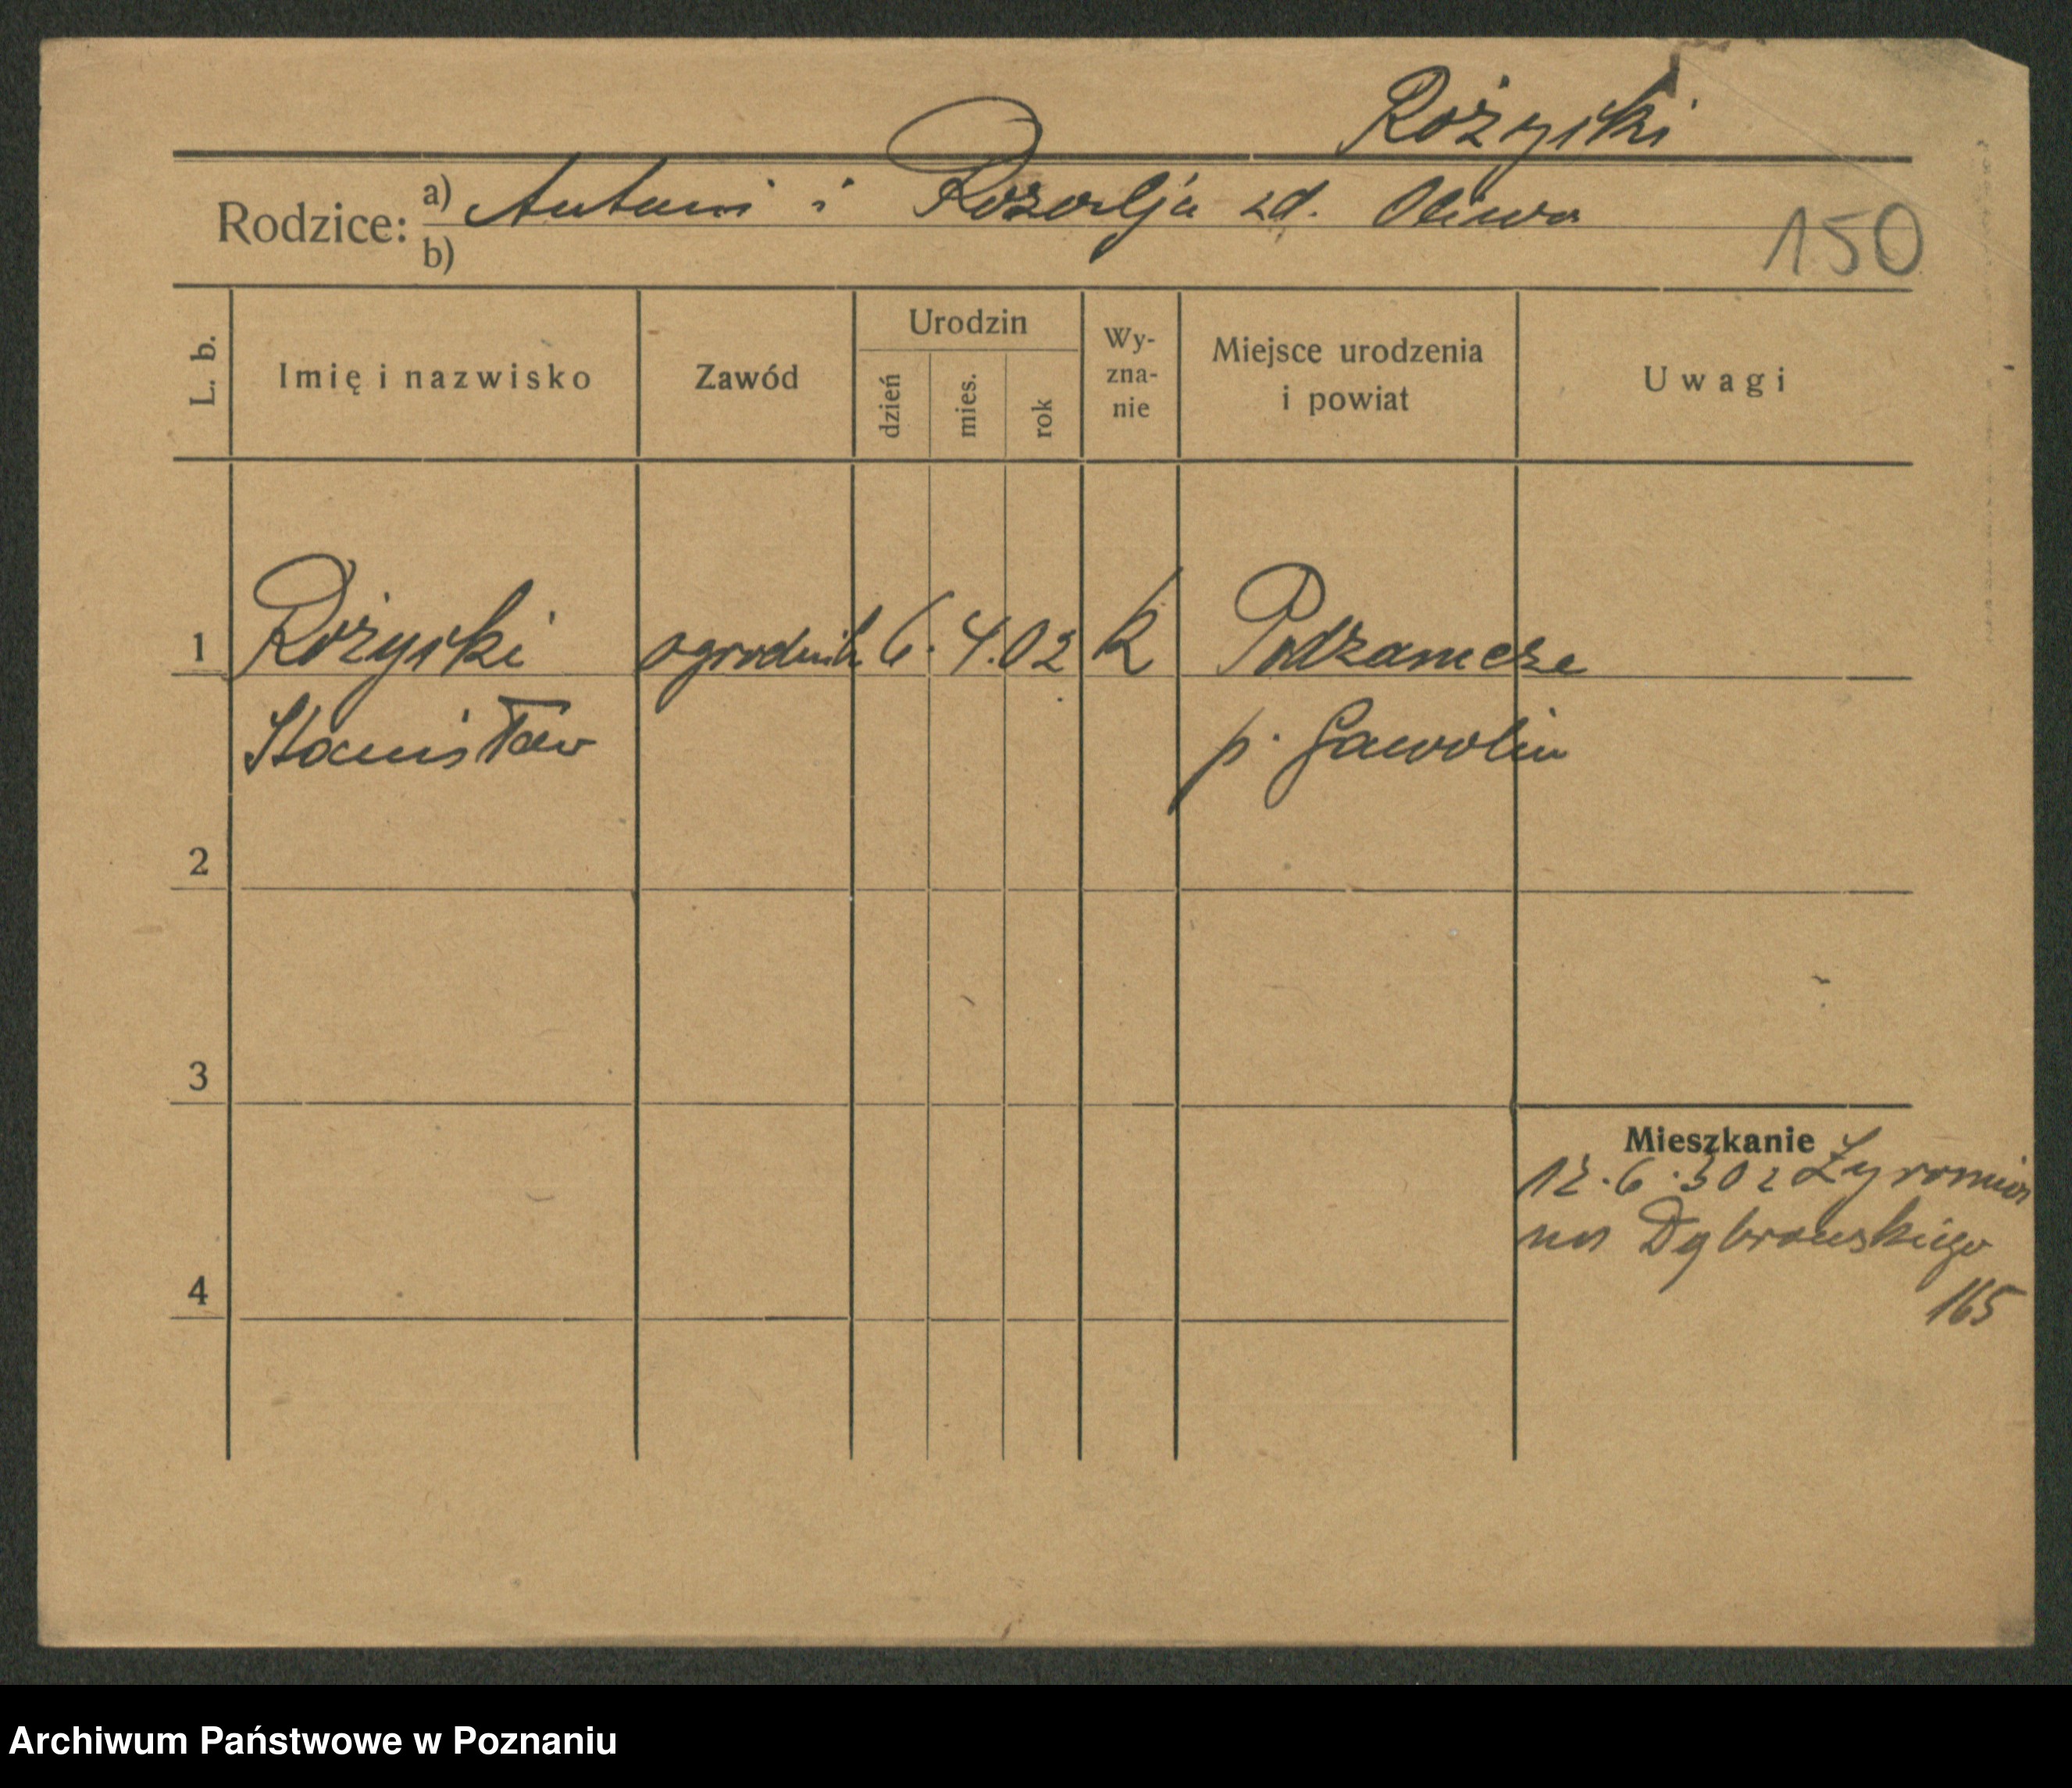 Rożycki
Rodzice: a) Antoni i Rozalja zd. Oliwa
b)
150
L. b.
Imię i nazwisko
Zawód
Urodzin
dzień
mies.
rok
Wy-
zna-
nie
Miejsce urodzenia
i powiat
Uwagi
1 Rożycki ogrodnik 6. 4. 02 k Podzamcze
Stanisław p. Gawolin
2
3
4
Mieszkanie
12.6.30 z
na Dąbrowskiego
165
Archiwum Państwowe w Poznaniu